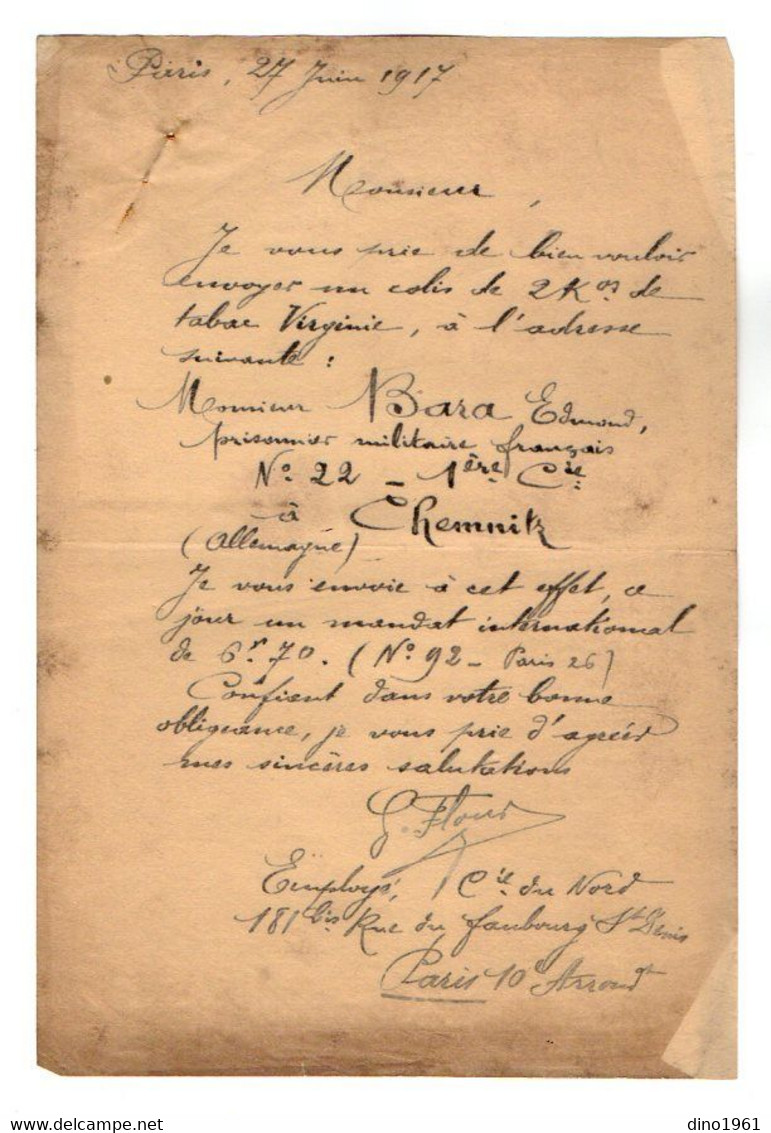 Paris, 27 Juin 1917
Monsieur,
Je vous prie de bien vouloir
envoyer un colis de 2 Kos de
tabac Virginie, à l'adresse
suivante :
Monsieur Bara Edmond,
prisonnier militaire français
No 22 - 1ère Cie
à Chemnitz
(Allemagne)
Je vous envoie à cet effet, ce
jour un mandat international
de 6fr70. (No 92 - Paris 26)
Confiant dans votre bonne
obligeance, je vous prie d'agréer
mes sincères salutations
G. Flour
Employé, Cie du Nord
181 bis Rue du faubourg St Denis
Paris 10e Arrondt
dino1961